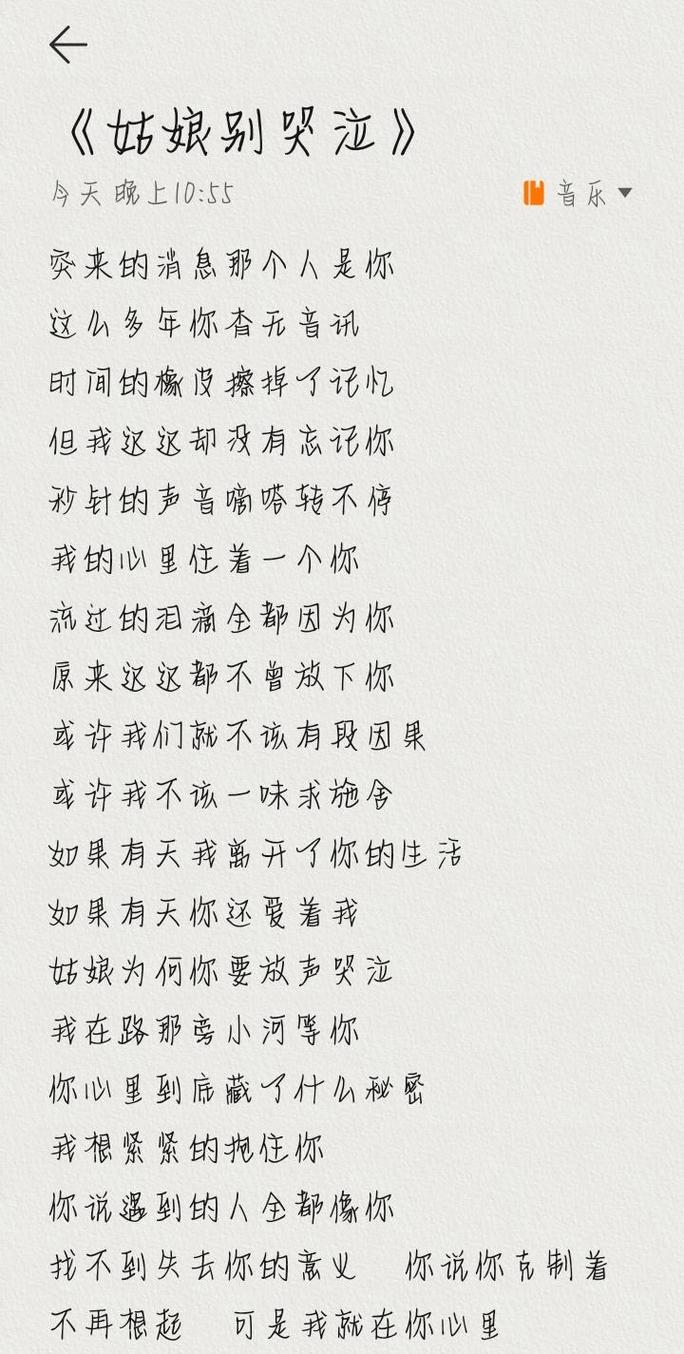 《姑娘别哭泣》
今天 晚上10:55 音乐
突来的消息那个人是你
这么多年你杳无音讯
时间的橡皮擦掉了记忆
但我迟迟却没有忘记你
秒针的声音嘀嗒转不停
我的心里住着一个你
流过的泪滴全都因为你
原来迟迟都不曾放下你
或许我们就不该有段因果
或许我不该一味求施舍
如果有天我离开了你的生活
如果有天你还爱着我
姑娘为何你要放声哭泣
我在路那旁小河等你
你心里到底藏了什么秘密
我想紧紧的抱住你
你说遇到的人全都像你
找不到失去你的意义 你说你克制着
不再想起 可是我就在你心里